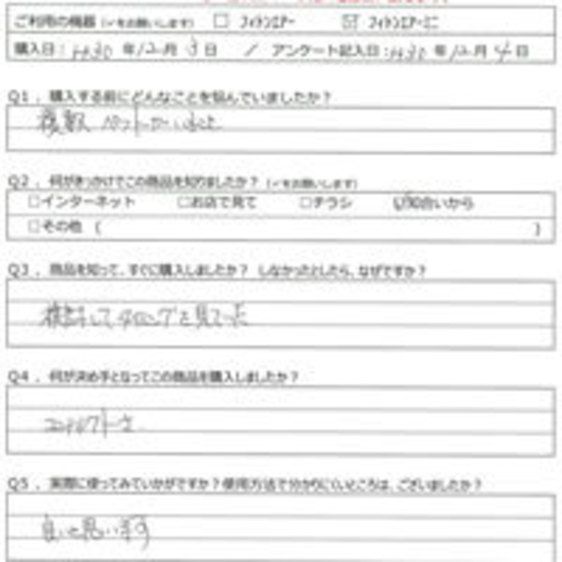 ご利用の機器 (✓をお願いします) □ フィトンエアー ☑ フィトンエアーミニ
購入日: H30 年 12 月 3 日 / アンケート記入日: H30 年 12 月 4 日
Q1. 購入する前にどんなことを悩んでいましたか?
複数ペットがいること
Q2. 何がきっかけでこの商品を知りましたか? (✓をお願いします)
□インターネット □お店で見て □チラシ ☑知合いから
□その他 ( )
Q3. 商品を知って、すぐに購入しましたか? しなかったとしたら、なぜですか?
検討してタイミングを見てった
Q4. 何が決め手となってこの商品を購入しましたか?
コンパクトさ
Q5. 実際に使ってみていかがですか?使用方法で分かりにくいところは、ございましたか?
良いと思います